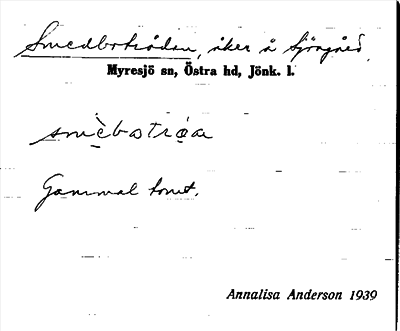 Smedbotråden, åker å Sjöagård,
Myresjö sn, Östra hd, Jönk. l.
smèbotrǫa
Gammal tomt.
Annalisa Anderson 1939